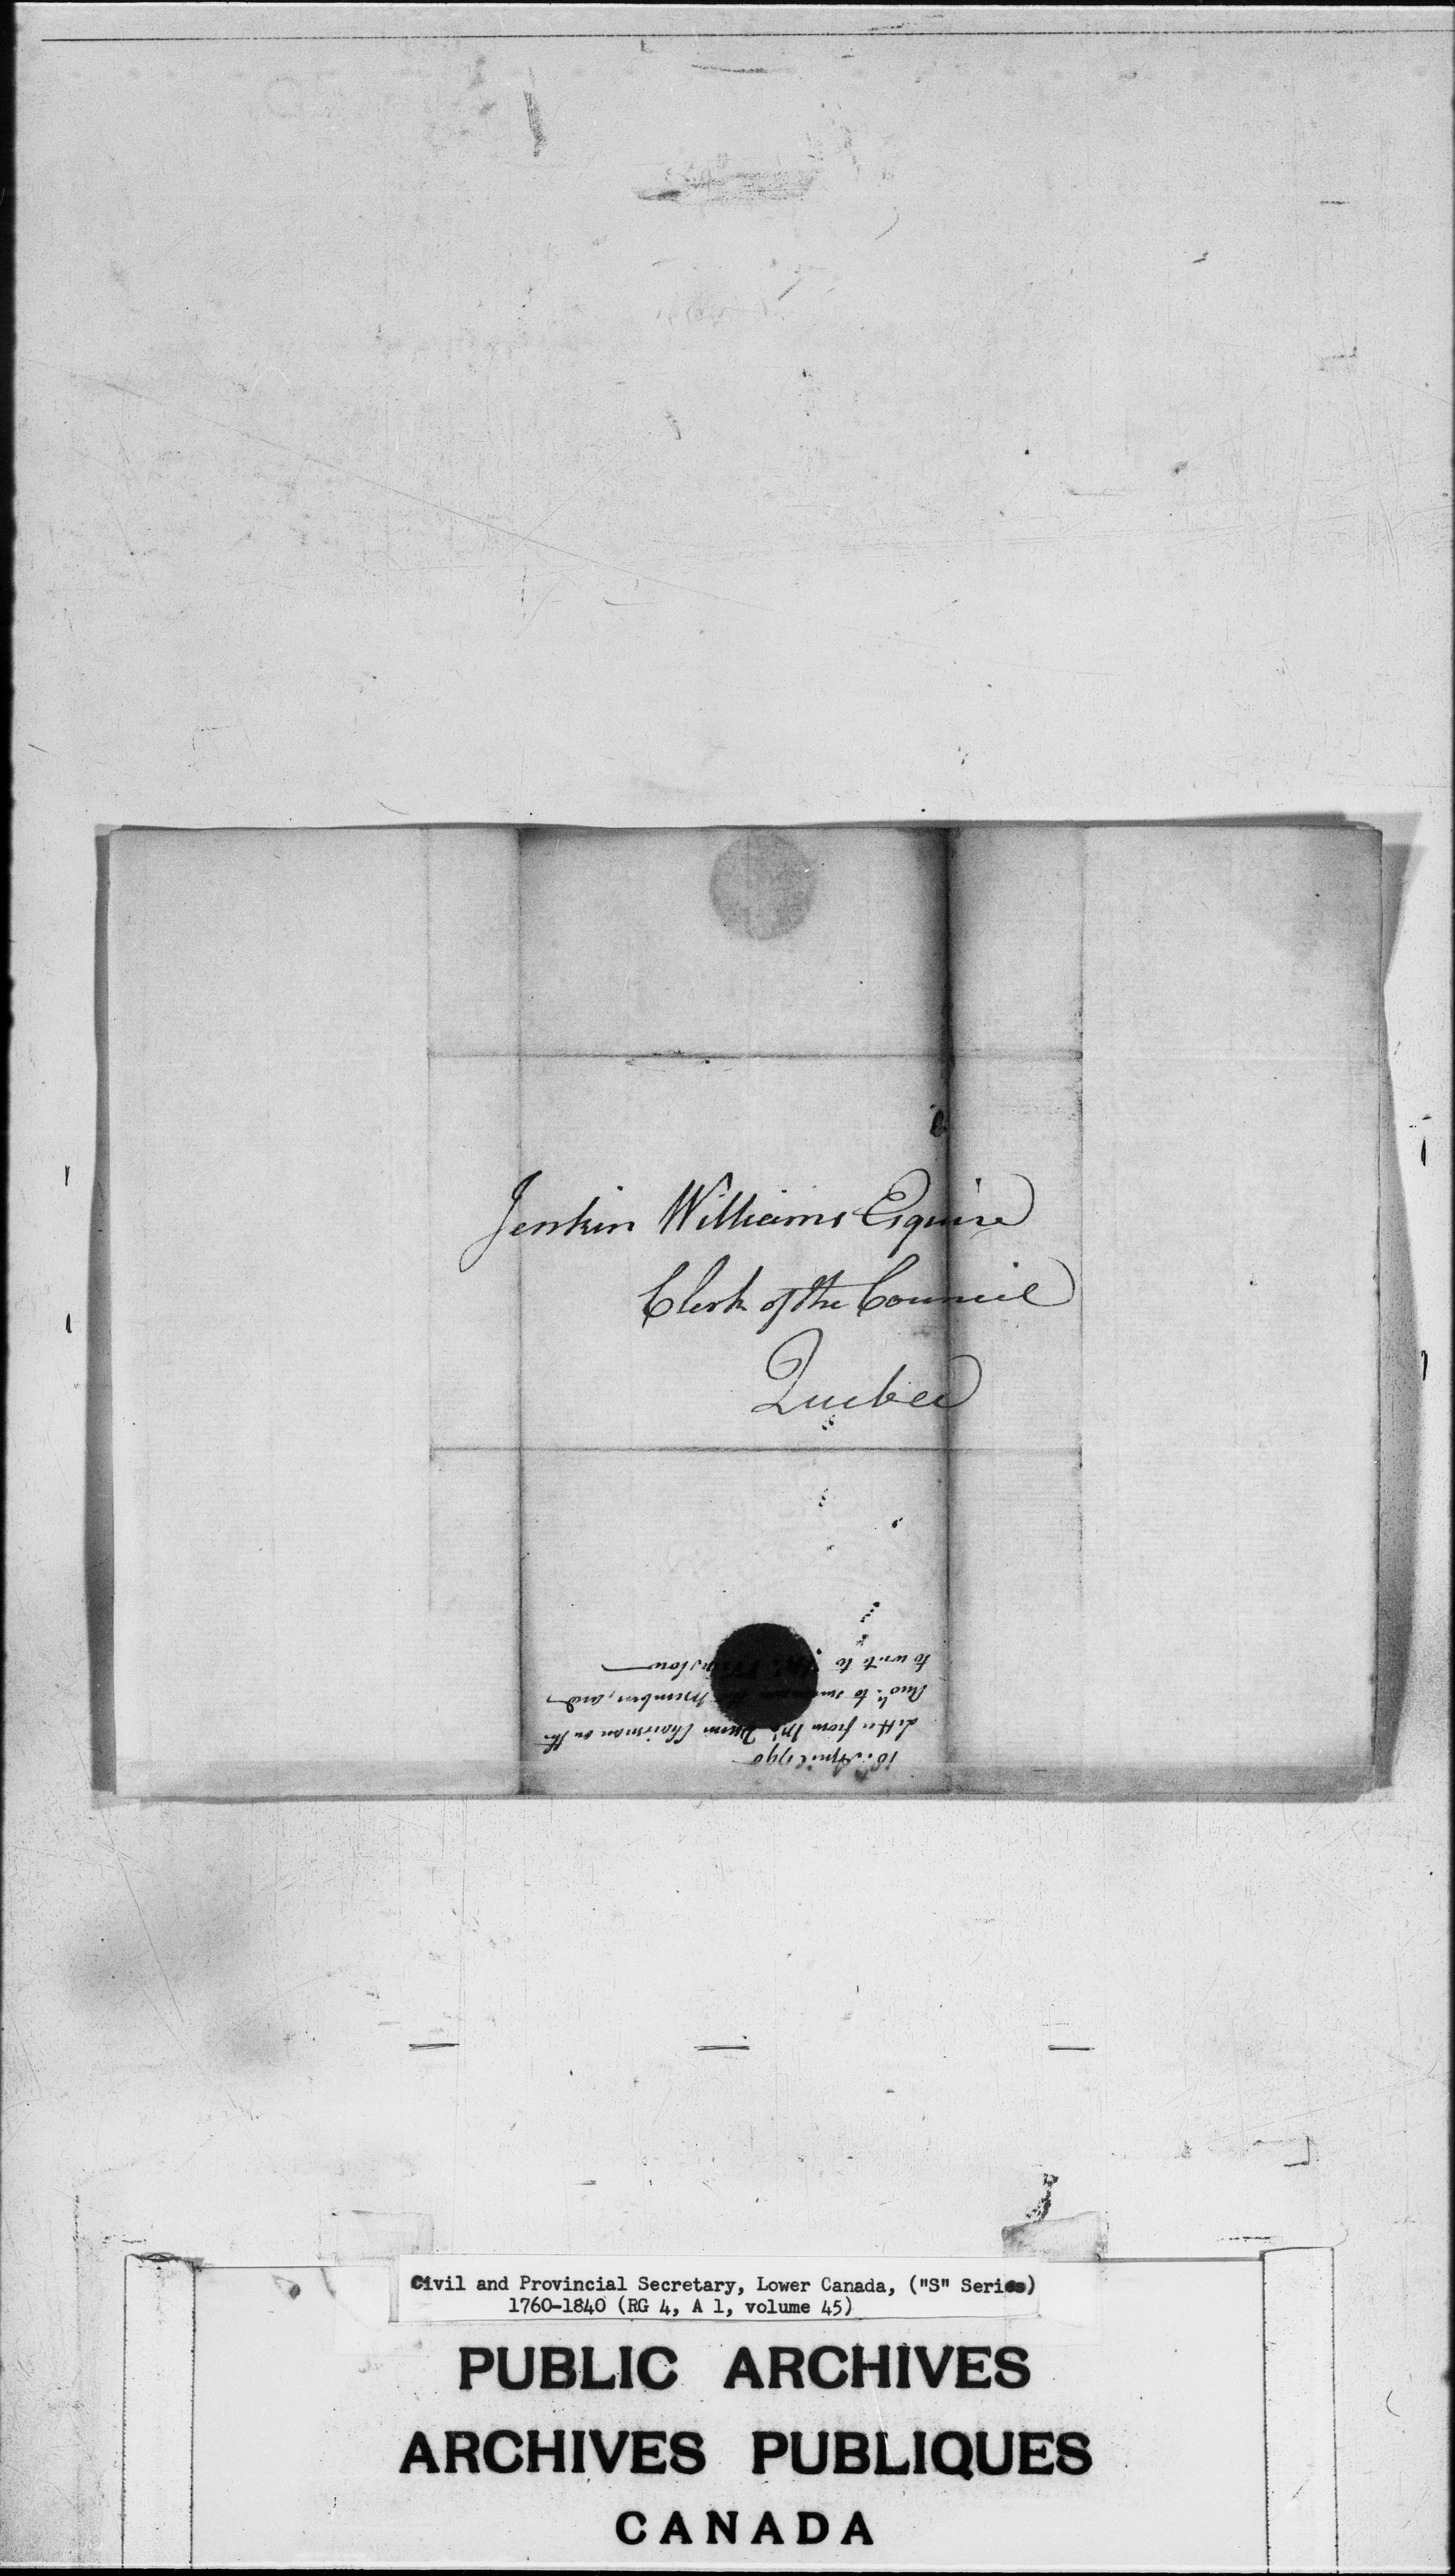 Jenkin Williams Esquire
Clerk of the Council
Quebec
18th April 1790
Letter from Mr Dunn Chairman on the
to summon the Members, and
to write to
Civil and Provincial Secretary, Lower Canada, ("S" Series)
1760-1840 (RG 4, A 1, volume 45)
PUBLIC ARCHIVES
ARCHIVES PUBLIQUES
CANADA